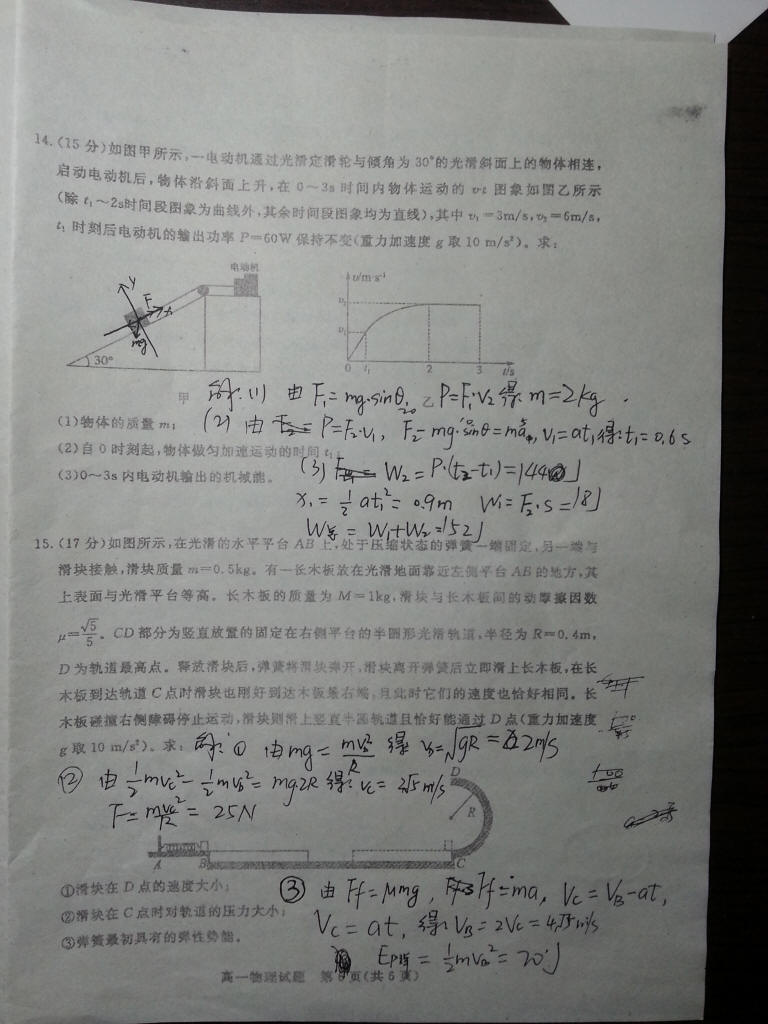 14.(15分)如图甲所示,一电动机通过光滑定滑轮与倾角为30°的光滑斜面上的物体相连,
启动电动机后,物体沿斜面上升,在0～3s时间内物体运动的v-t图象如图乙所示
(除t₁～2s时间段图象为曲线外,其余时间段图象均为直线),其中v₁=3m/s,v₂=6m/s,
t₁时刻后电动机的输出功率P=60W保持不变(重力加速度g取10 m/s²)。求:
电动机
y
F
x
mg
30°
v/m·s⁻¹
v₂
v₁
0 t₁ 2 3 t/s
甲
乙
解:(1) 由F₁=mg·sinθ, P=F₁·v₂得:m=2kg.
(1)物体的质量m;
(2)由 P=F₂·v₁, F₂-mg·sinθ=ma, v₁=at₁得:t₁=0.6s
(2)自0时刻起,物体做匀加速运动的时间t₁;
(3)0～3s内电动机输出的机械能。
(3) W₂=P·(t₂-t₁)=144J
x₁=½at₁²=0.9m W₁=F₂·s=18J
W总=W₁+W₂=152J
15.(17分)如图所示,在光滑的水平平台AB上,处于压缩状态的弹簧一端固定,另一端与
滑块接触,滑块质量m=0.5kg。有一长木板放在光滑地面靠近左侧平台AB的地方,其
上表面与光滑平台等高。长木板的质量为M=1kg,滑块与长木板间的动摩擦因数
μ=√5/5。CD部分为竖直放置的固定在右侧平台的半圆形光滑轨道,半径为R=0.4m,
D为轨道最高点。释放滑块后,弹簧将滑块弹开,滑块离开弹簧后立即滑上长木板,在长
木板到达轨道C点时滑块也刚好到达木板最右端,且此时它们的速度也恰好相同。长
木板碰撞右侧障碍停止运动,滑块则滑上竖直半圆轨道且恰好能通过D点(重力加速度
g取10 m/s²)。求:
解:① 由mg=mv²/R 得 v_D=√gR=2m/s
② 由½mv_C²-½mv_D²=mg2R得:v_C=2√5m/s
F=mv_C²/R=25N
D
R
A B C
①滑块在D点的速度大小;
②滑块在C点时对轨道的压力大小;
③弹簧最初具有的弹性势能。
③ 由Ff=μmg, Ff=ma, V_C=V_B-at,
V_C=at, 得:V_B=2V_C=4√5m/s
Ep弹=½mv_B²=20J
高一物理试题 第 页(共6页)